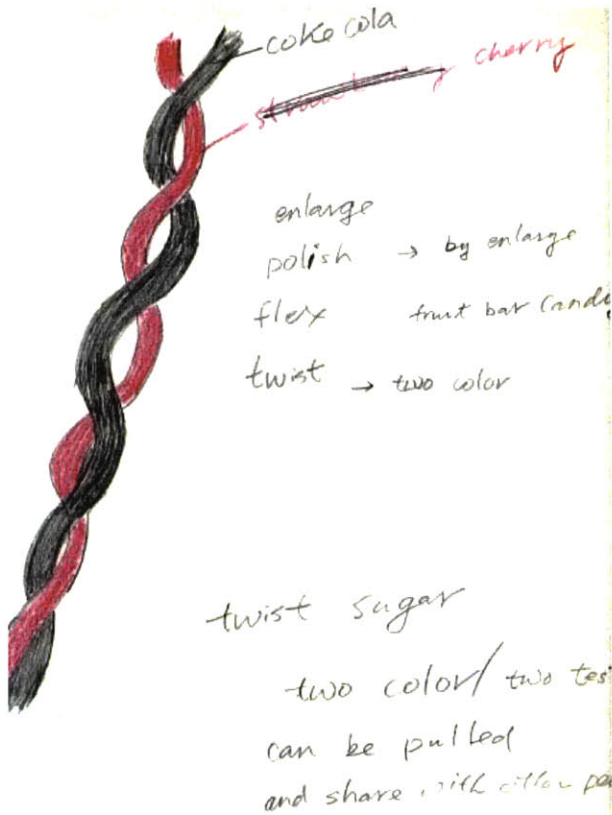 coke cola
cherry
enlarge
polish → by enlarge
flex fruit bar Candy
twist → two color
twist sugar
two color/ two tes
can be pulled
and share with